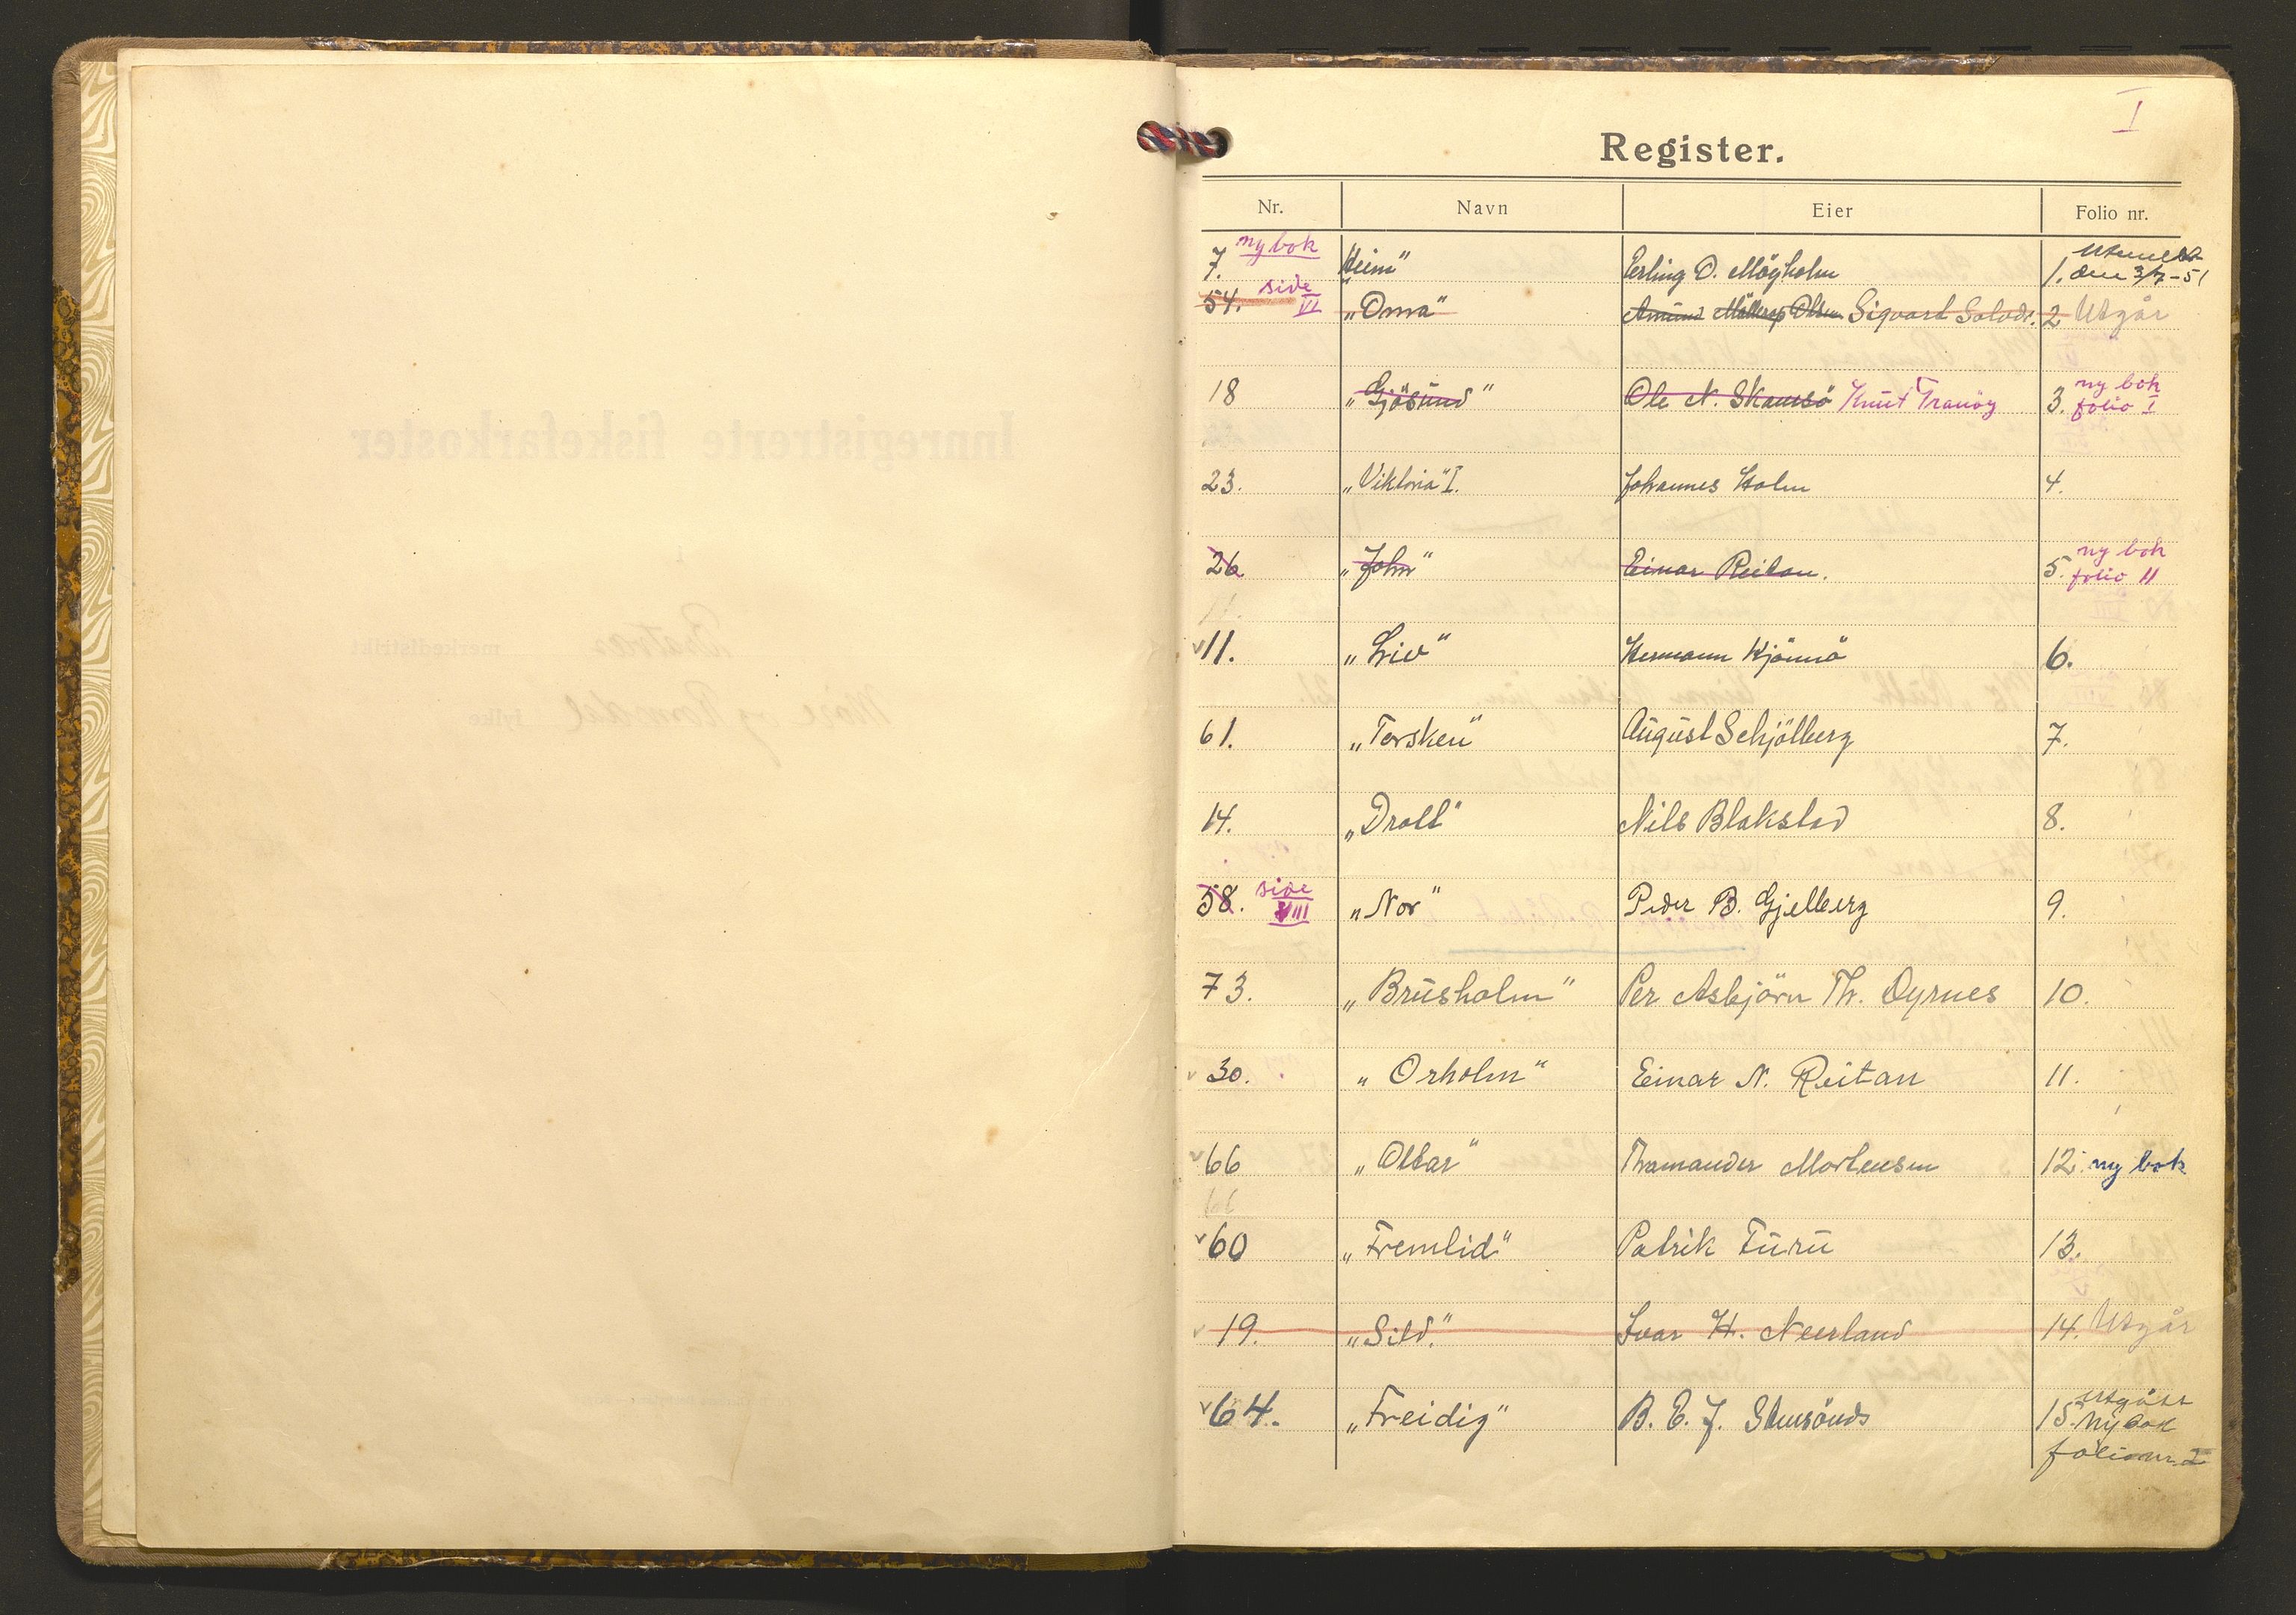 I
Register.
Nr. Navn Eier Folio nr.
7. ny bok „Heim" Erling O. Möyholm 1. Utmeldt den 3/7-51
54. side VI „Oma" Amund Olsen Sigvart Solvds. 2 Utgår
18 „Gjösund" Ole N. Skamsö Knut Tranöy 3. ny bok folio I
23. „Viktoria" I. Johannes Holm 4.
26 „John" Einar Reitan. 5. ny bok folio II
11. „Liv" Hermann Kjönnö 6.
61. „Torsken" August Schjölberg 7.
14. „Drott" Nils Blakstad 8.
58. side VIII „Nor" Peder B. Gjelberg 9.
73. „Brusholm" Per Asbjörn Th. Dyrnes 10.
30. „Orholm" Einar N. Reitan 11.
66 „Ottar" Thramander Mortensen 12. ny bok
66
60 „Fremtid" Patrik Furu 13.
19. „Sild." Ivar H. Neerland 14. Utgår
64. „Freidig" B. E. J. 15. Utgått Ny bok
folio nr. 2
Innregistrerte fiskefarkoster
merkedistrikt
Möre og Romsdal fylke